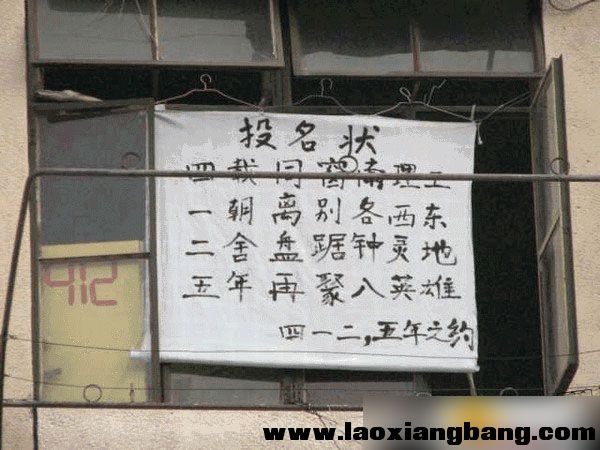 投名状
四载同窗南理工
一朝离别各西东
二舍盘踞钟灵地
五年再聚八英雄
四一二,五年之约
412
www.laoxiangbang.com